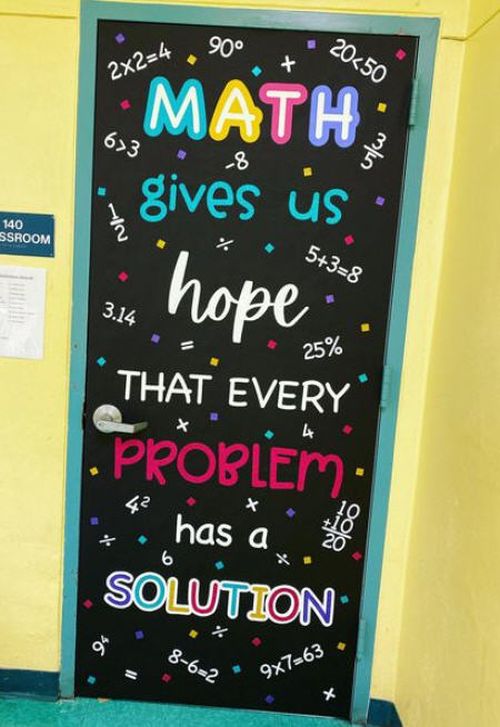 2×2=4 90° 20<50
+
MATH
6>3 -8 3/5
gives us
1/2
÷ 5+3=8
hope
3.14
= 25%
THAT EVERY
× 4
PROBLEM
4² × 10
+10
has a 20
÷ ÷
6
SOLUTION
÷
9⁴ 8-6=2 9×7=63
= +
140
SSROOM